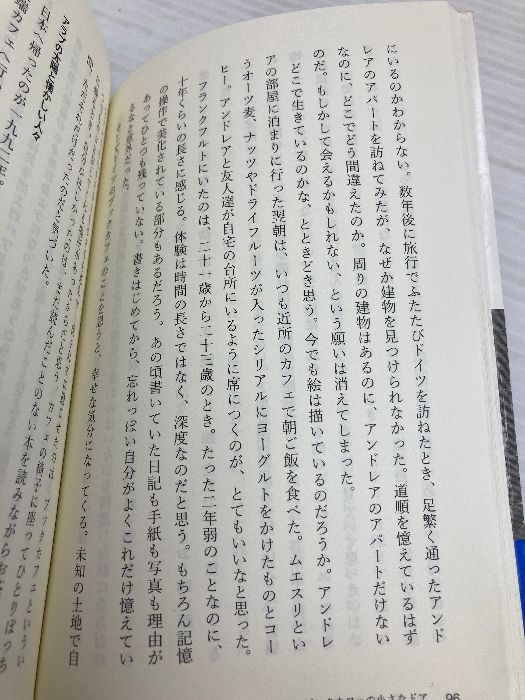 にいるのかわからない。数年後に旅行でふたたびドイツを訪ねたとき、足繁く通ったアンド
レアのアパートを訪ねてみたが、なぜか建物を見つけられなかった。道順を憶えているはず
なのに、どこでどう間違えたのか。周りの建物はあるのに、アンドレアのアパートだけない
のだ。もしかして会えるかもしれない、という願いは消えてしまった。
どこで生きているのかな、とときどき思う。今でも絵は描いているのだろうか。アンドレ
アの部屋に泊まりに行った翌朝は、いつも近所のカフェで朝ご飯を食べた。ムエスリとい
うオーツ麦、ナッツやドライフルーツが入ったシリアルにヨーグルトをかけたものとコー
ヒー。アンドレアと友人達が自宅の台所にいるように席につくのが、とてもいいなと思った。
フランクフルトにいたのは、二十一歳から二十三歳のとき。たった二年弱のことなのに、
十年くらいの長さに感じる。体験は時間の長さではなく、深度なのだと思う。もちろん記憶
の操作で美化されている部分もあるだろう。あの頃書いていた日記も手紙も写真も理由が
あってひとつも残っていない。書きはじめてから、忘れっぽい自分がよくこれだけ憶えてい
るなと意外だった。
ブックカフェのことを思うと、幸せな気分になってくる。未知の土地で自
ブックカフェといい
カフェの椅子に座ってひとりぼっち
まだ読んだことのない本を読みながらお
だと気づいた。
アラブの太陽と懐かしい人々
日本へ帰ったのが一九九二年。
カフェへ行
の小さなドア
96